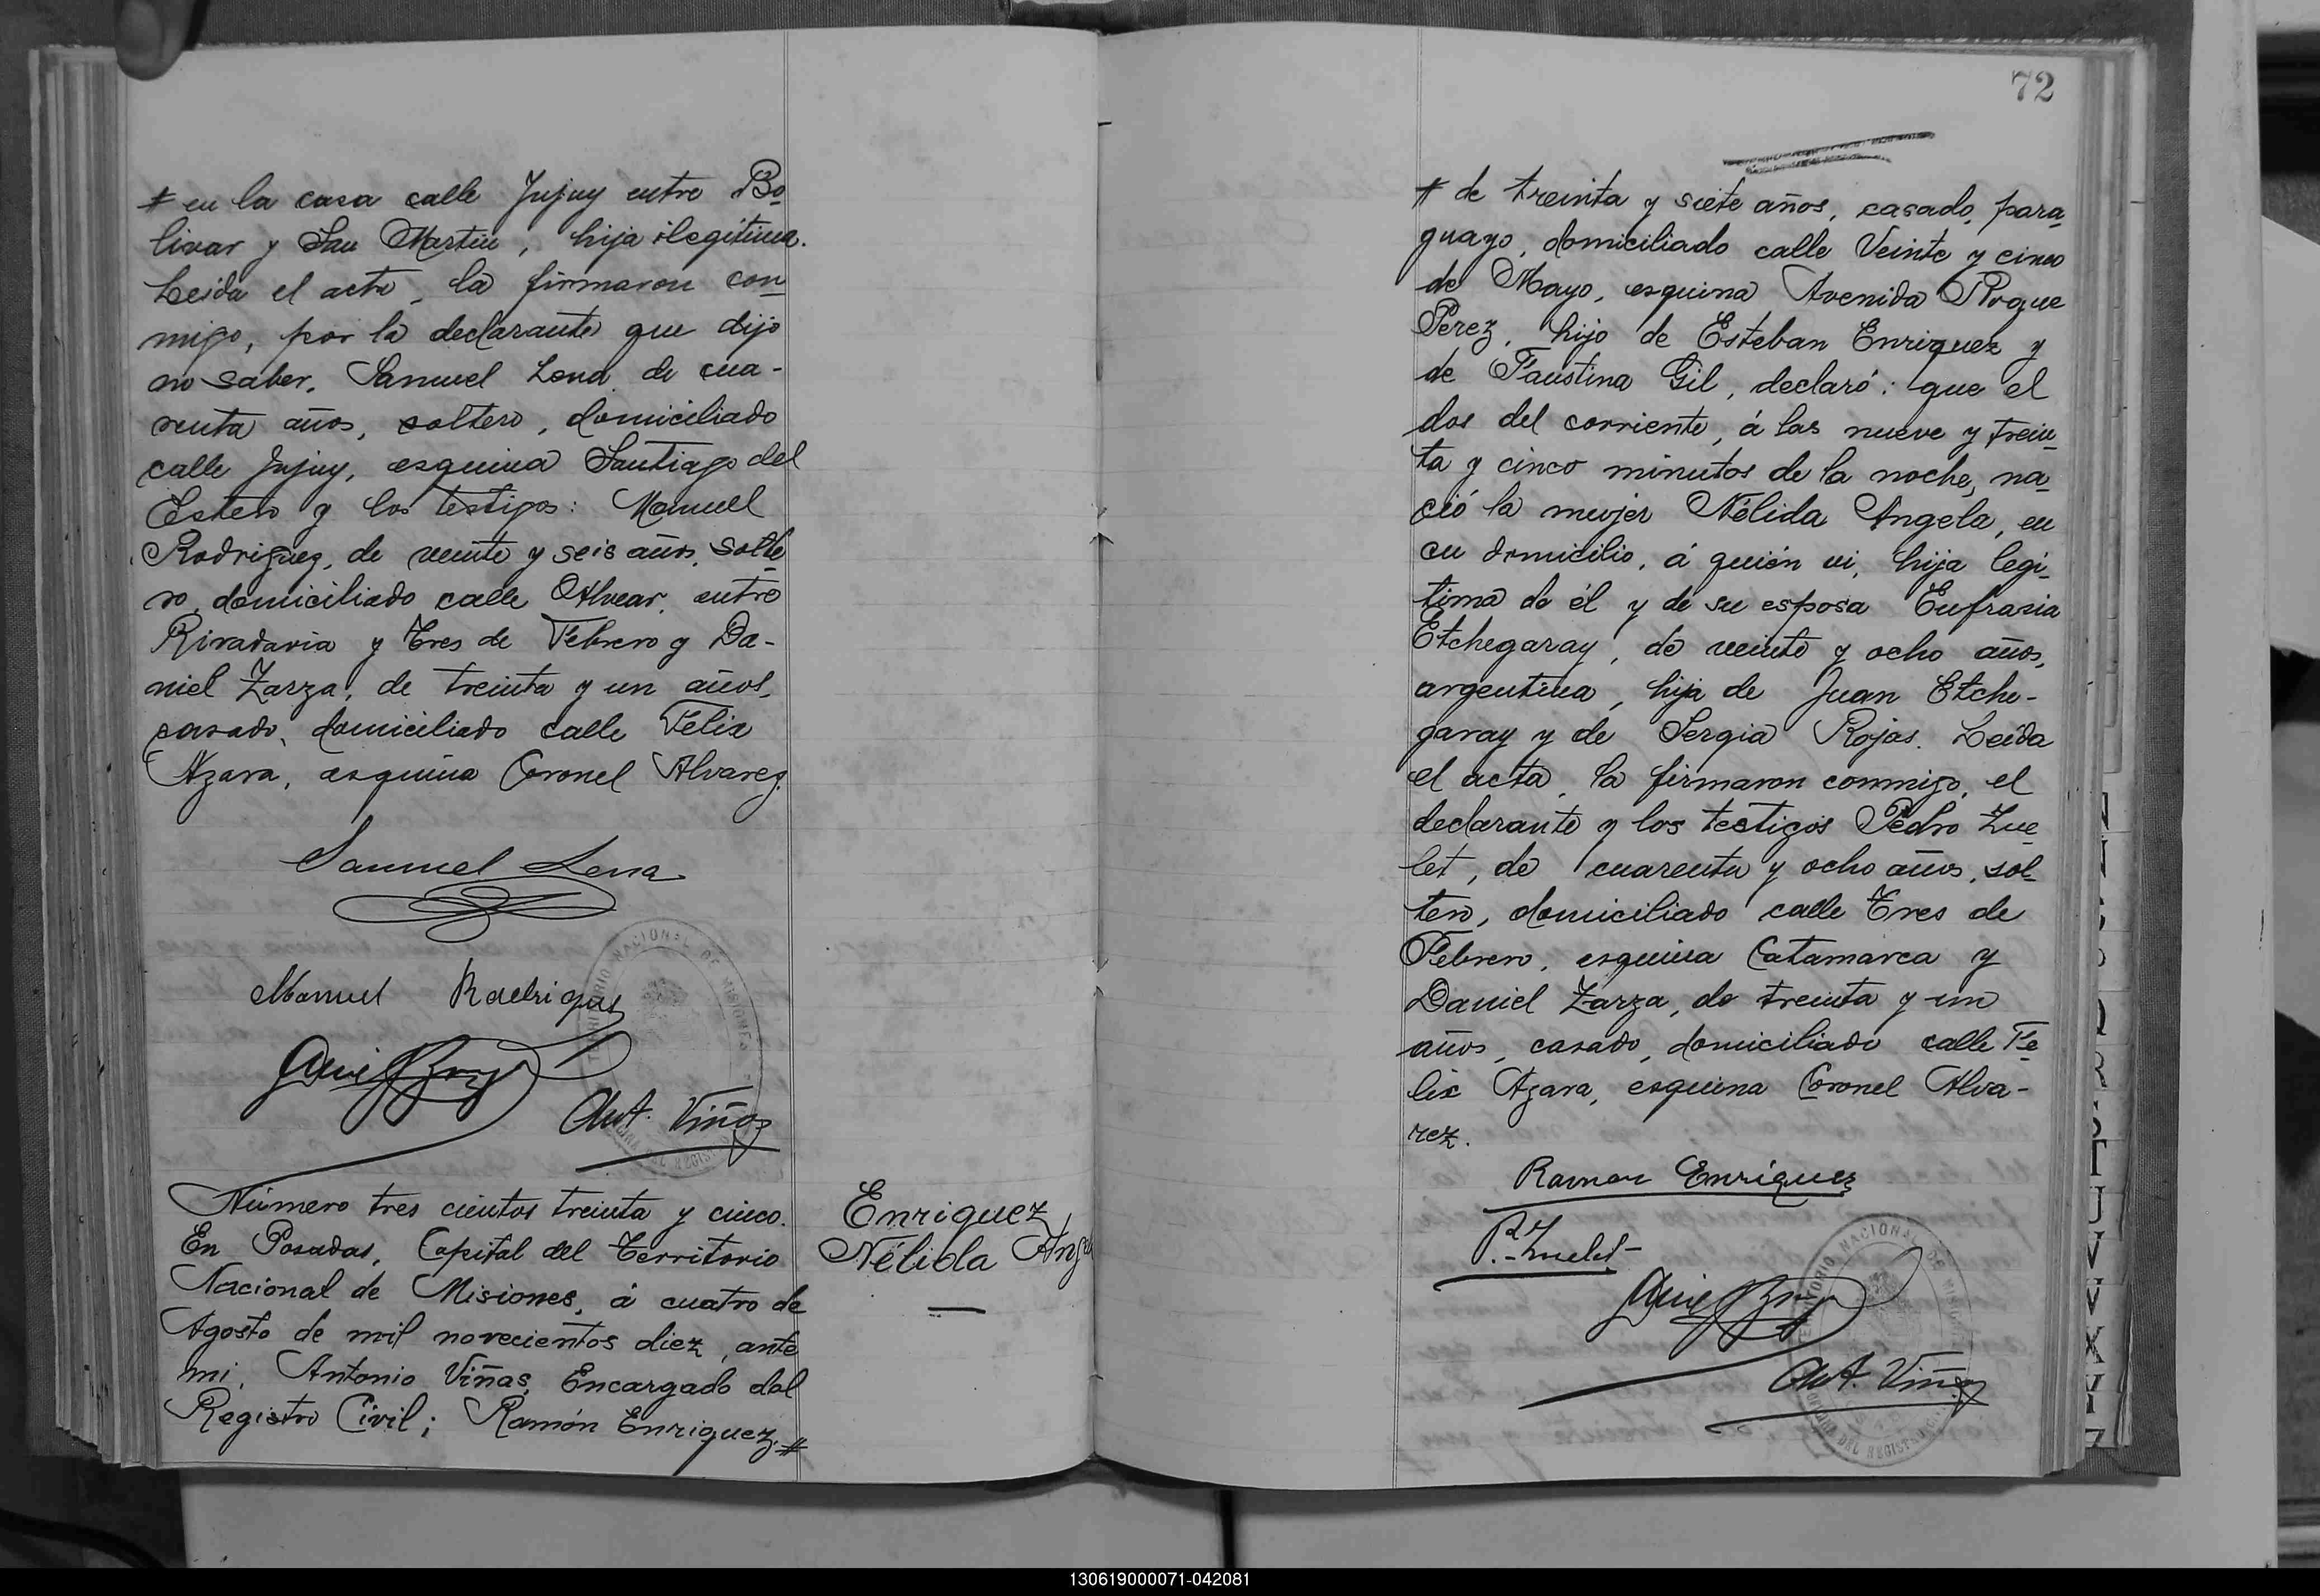 # en la casa calle Jujuy entre Bo
livar y San Martin, hija ilegitima.
Leida el acta, la firmaron con
migo, por la declarante que dijo
no saber, Samuel Lena de cua-
renta años, soltero, domiciliado
calle Jujuy, esquina Santiago del
Estero y los testigos: Manuel
Rodriguez, de veinte y seis años, solte
ro, domiciliado calle Alvear, entre
Rivadavia y Tres de Febrero y Da-
niel Zarza, de treinta y un años,
casado, domiciliado calle Felix
Azara, esquina Coronel Alvarez.
Samuel Lena
Manuel Rodriguez
Ant. Viñas
TERRITORIO NACIONAL DE MISIONES
Número tres cientos treinta y cinco.
En Posadas, Capital del Territorio
Nacional de Misiones, á cuatro de
Agosto de mil novecientos diez, ante
mi, Antonio Viñas, Encargado del
Registro Civil; Ramón Enriquez #
Enriquez
Nélida Ang
72
# de treinta y siete años, casado, para
guayo, domiciliado calle Veinte y cinco
de Mayo, esquina Avenida Roque
Perez, hijo de Esteban Enriquez y
de Faustina Gil, declaró: que el
dos del corriente, á las nueve y trein
ta y cinco minutos de la noche, na
ció la mujer Nélida Angela, en
su domicilio, á quién vi, hija legi
tima de él y de su esposa Eufrasia
Etchegaray, de veinte y ocho años,
argentina, hija de Juan Etche-
garay y de Sergia Rojas. Leída
el acta, la firmaron conmigo, el
declarante y los testigos Pedro Zue
let, de cuarenta y ocho años, sol
tero, domiciliado calle Tres de
Febrero, esquina Catamarca y
Daniel Zarza, de treinta y un
años, casado, domiciliado calle Fe
lix Azara, esquina Coronel Alva-
rez.
Ramon Enriquez
P. Zuelet
Ant. Viñas
TERRITORIO NACIONAL DE MISIONES
OFICINA DEL REGISTRO CIVIL
130619000071-042081